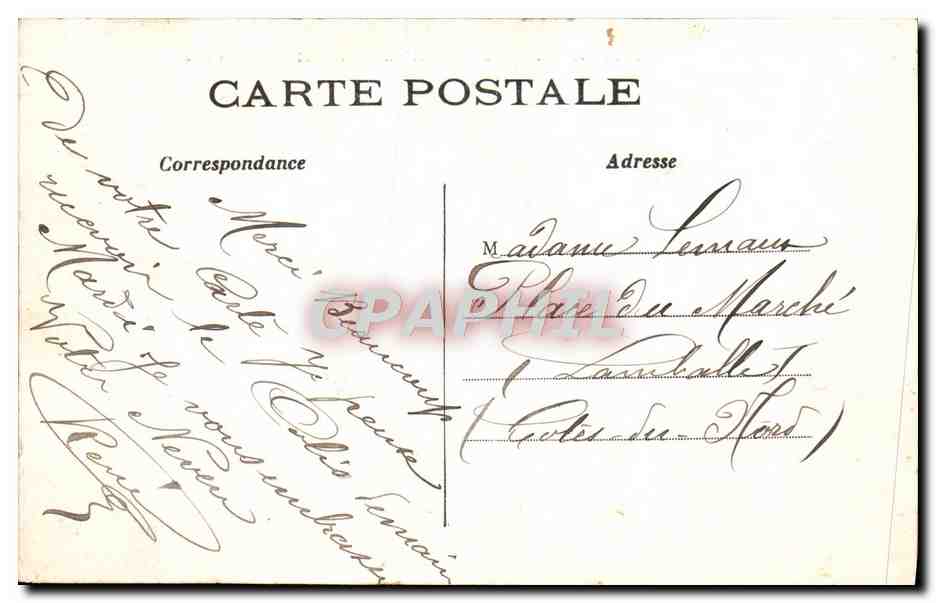 CARTE POSTALE
Correspondance
Adresse
Merci Beaucoup
De votre Carte je pense
recevoir le Colis Demain
Mardi Je vous embrasse
Votre Neveu
Madame Lemaux
Place du Marché
(Lamballe)
(Côtes-du-Nord)
CPAPHIL